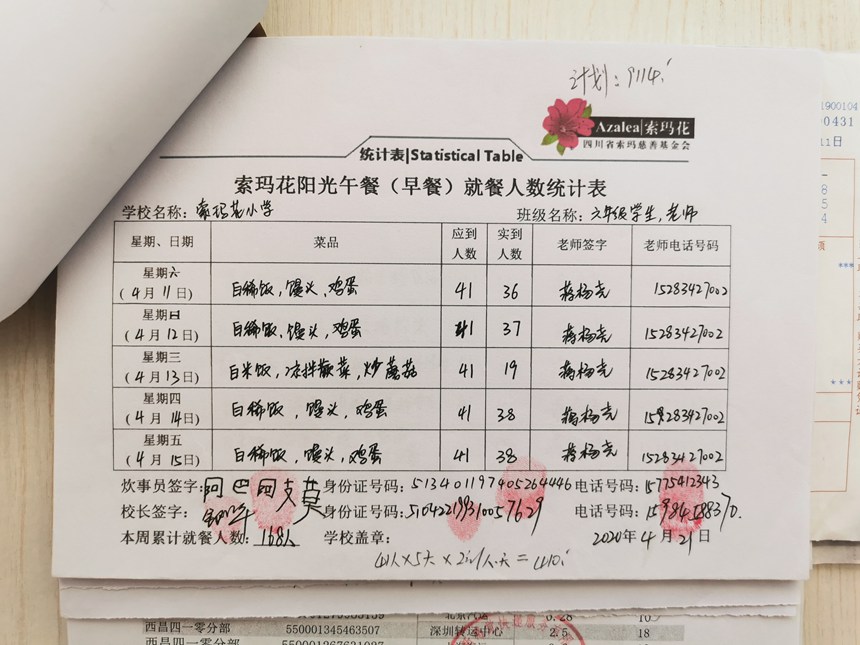 计划:
Azalea 索玛花
四川省索玛慈善基金会
统计表|Statistical Table
索玛花阳光午餐（早餐）就餐人数统计表
学校名称：索玛花小学 班级名称：六年级学生,老师
星期、日期 菜品 应到人数 实到人数 老师签字 老师电话号码
星期六 (4月11日) 白稀饭,馒头,鸡蛋 41 36 蒋杨尧 15283427002
星期日 (4月12日) 白稀饭,馒头,鸡蛋 41 37 蒋杨尧 15283427002
星期三 (4月13日) 白米饭,凉拌散菜,炒蘑菇 41 19 蒋杨尧 15283427002
星期四 (4月14日) 白稀饭,馒头,鸡蛋 41 38 蒋杨尧 15283427002
星期五 (4月15日) 白稀饭,馒头,鸡蛋 41 38 蒋杨尧 15283427002
炊事员签字: 阿巴 支莫 身份证号码：513401197405264446 电话号码：15775412343
校长签字： 身份证号码： 电话号码：
本周累计就餐人数：168人 学校盖章： 2020年4月21日
41人×5天×2
1900104
00431
11日
西昌四一零分部 550001345463507 深圳转运中心 2.5 18
西昌四一零分部